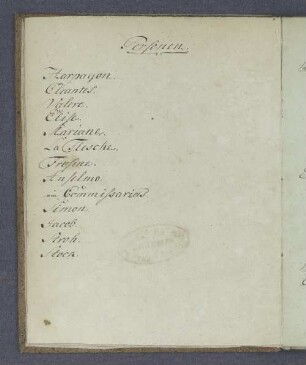 Personen.
Harpagon.
Cleantes.
Valere.
Elise.
Mariane.
La Flesche.
Frosine.
Anselmo.
ein Commissarius.
Simon.
Jacob.
Stroh.
Stock.